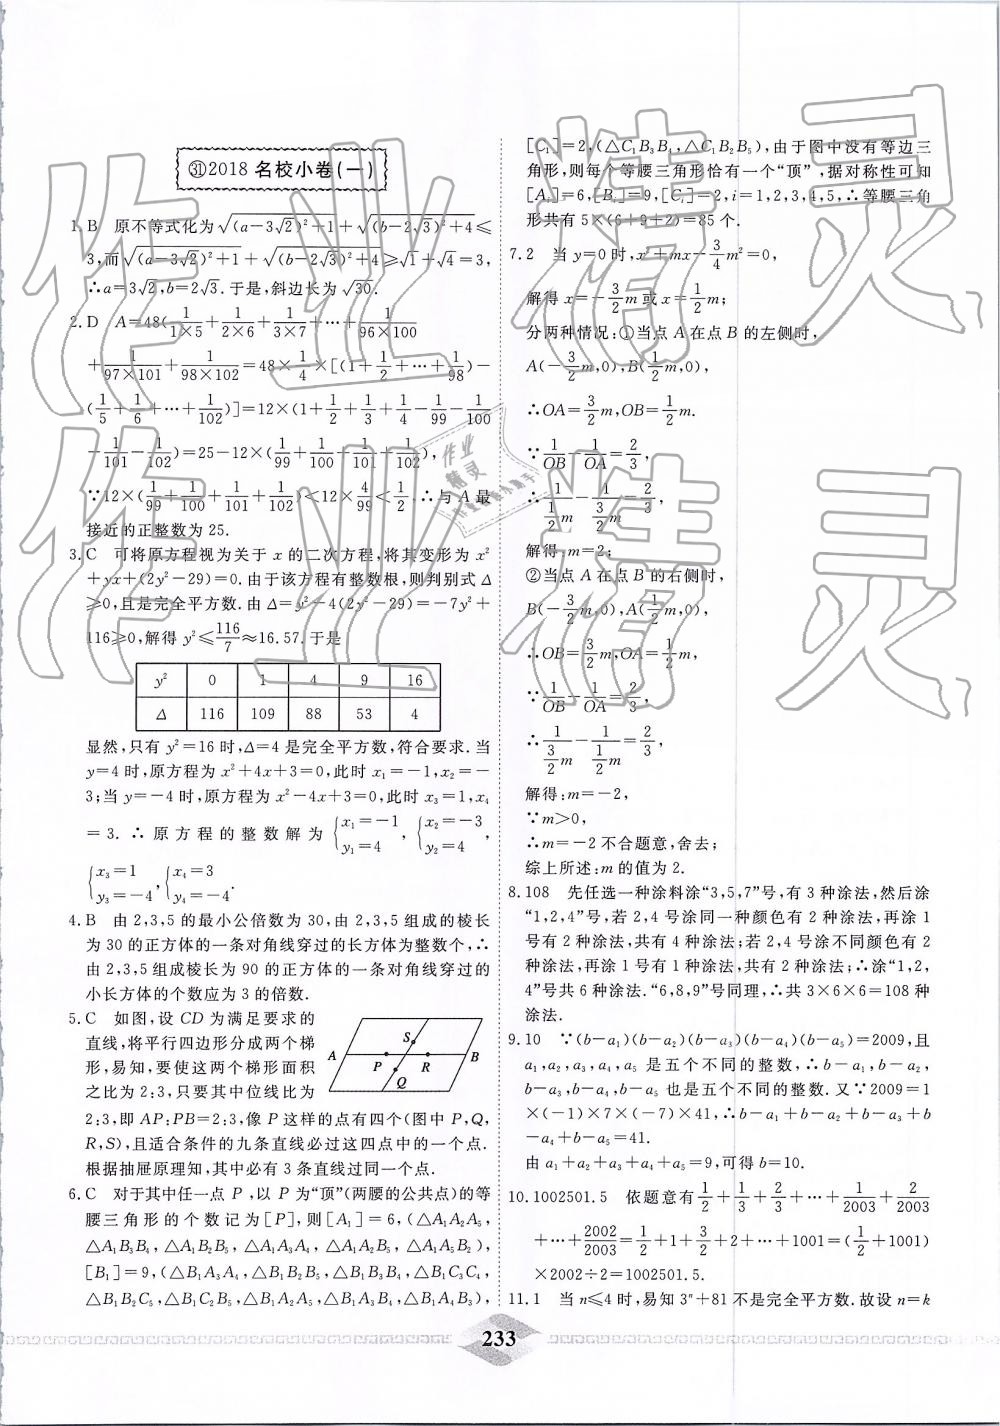 ㉛2018 名校小卷(一)
1. B 原不等式化为√((a-3√2)²+1)+√((b-2√3)²+4)≤
3,而√((a-3√2)²+1)+√((b-2√3)²+4)≥√1+√4=3,
∴a=3√2,b=2√3.于是,斜边长为√30.
2. D A=48(1/(1×5)+1/(2×6)+1/(3×7)+…+1/(96×100)
+1/(97×101)+1/(98×102)=48×1/4×[(1+1/2+…+1/98)-
(1/5+1/6+…+1/102)]=12×(1+1/2+1/3+1/4-1/99-1/100
-1/101-1/102)=25-12×(1/99+1/100+1/101+1/102),
∵12×(1/99+1/100+1/101+1/102)<12×4/99<1/2.∴与 A 最
接近的正整数为 25.
3. C 可将原方程视为关于 x 的二次方程,将其变形为 x²
+yx+(2y²-29)=0.由于该方程有整数根,则判别式 Δ
≥0,且是完全平方数.由 Δ=y²-4(2y²-29)=-7y²+
116≥0,解得 y²≤116/7≈16.57.于是
y² 0 1 4 9 16
Δ 116 109 88 53 4
显然,只有 y²=16 时,Δ=4 是完全平方数,符合要求.当
y=4 时,原方程为 x²+4x+3=0,此时 x₁=-1,x₂=-
3;当 y=-4 时,原方程为 x²-4x+3=0,此时 x₃=1,x₄
=3.∴原方程的整数解为{x₁=-1 y₁=4,{x₂=-3 y₂=4,
{x₃=1 y₃=-4,{x₄=3 y₄=-4.
4. B 由 2,3,5 的最小公倍数为 30,由 2,3,5 组成的棱长
为 30 的正方体的一条对角线穿过的长方体为整数个,∴
由 2,3,5 组成棱长为 90 的正方体的一条对角线穿过的
小长方体的个数应为 3 的倍数.
5. C 如图,设 CD 为满足要求的
直线,将平行四边形分成两个梯
形,易知,要使这两个梯形面积
之比为 2:3,只要其中位线比为
A P Q S R B
2:3,即 AP:PB=2:3,像 P 这样的点有四个(图中 P,Q,
R,S),且适合条件的九条直线必过这四点中的一个点.
根据抽屉原理知,其中必有 3 条直线过同一个点.
6. C 对于其中任一点 P,以 P 为“顶”(两腰的公共点)的等
腰三角形的个数记为[P],则[A₁]=6,(△A₁A₂A₅,
△A₁B₃B₄,△A₁B₂B₅,△A₁A₃A₄,△A₁A₂B₅,△A₁A₅B₂),
[B₁]=9,(△B₁A₃A₄,△B₁B₂B₅,△B₁B₃B₄,△B₁C₃C₄,
△B₁B₂C₅,△B₁C₂B₅,△B₁A₂A₅,△B₁A₃B₄,△B₁A₄B₃),
[C₁]=2,(△C₁B₃B₄,△C₁B₂B₅),由于图中没有等边三
角形,则每个等腰三角形恰有一个“顶”,据对称性可知
[Aᵢ]=6,[Bᵢ]=9,[Cᵢ]=2,i=1,2,3,4,5,∴等腰三角
形共有 5×(6+9+2)=85 个.
7. 2 当 y=0 时,x²+mx-3/4m²=0,
解得 x=-3/2m 或 x=1/2m;
分两种情况:①当点 A 在点 B 的左侧时,
A(-3/2m,0),B(1/2m,0),
∴OA=3/2m,OB=1/2m.
∵1/OB-1/OA=2/3,
∴1/(1/2m)-1/(3/2m)=2/3,
解得:m=2;
②当点 A 在点 B 的右侧时,
B(-3/2m,0),A(1/2m,0),
∴OB=3/2m,OA=1/2m,
∵1/OB-1/OA=2/3,
∴1/(3/2m)-1/(1/2m)=2/3,
解得:m=-2,
∵m>0,
∴m=-2 不合题意,舍去;
综上所述:m 的值为 2.
8. 108 先任选一种涂料涂“3,5,7”号,有 3 种涂法,然后涂
“1,2,4”号,若 2,4 号涂同一种颜色有 2 种涂法,再涂 1
号有 2 种涂法,共有 4 种涂法;若 2,4 号涂不同颜色有 2
种涂法,再涂 1 号有 1 种涂法,共有 2 种涂法;∴涂“1,2,
4”号共 6 种涂法.“6,8,9”号同理,∴共 3×6×6=108 种
涂法.
9. 10 ∵(b-a₁)(b-a₂)(b-a₃)(b-a₄)(b-a₅)=2009,且
a₁,a₂,a₃,a₄,a₅ 是五个不同的整数,∴b-a₁,b-a₂,
b-a₃,b-a₄,b-a₅ 也是五个不同的整数.又∵2009=1
×(-1)×7×(-7)×41,∴b-a₁+b-a₂+b-a₃+b
-a₄+b-a₅=41.
由 a₁+a₂+a₃+a₄+a₅=9,可得 b=10.
10. 1002501.5 依题意有1/2+1/3+2/3+…+1/2003+2/2003
+…+2002/2003=1/2+1+3/2+2+…+1001=(1/2+1001)
×2002÷2=1002501.5.
11. 1 当 n≤4 时,易知 3ⁿ+81 不是完全平方数.故设 n=k
233
作业精灵
作业精灵
作业精灵